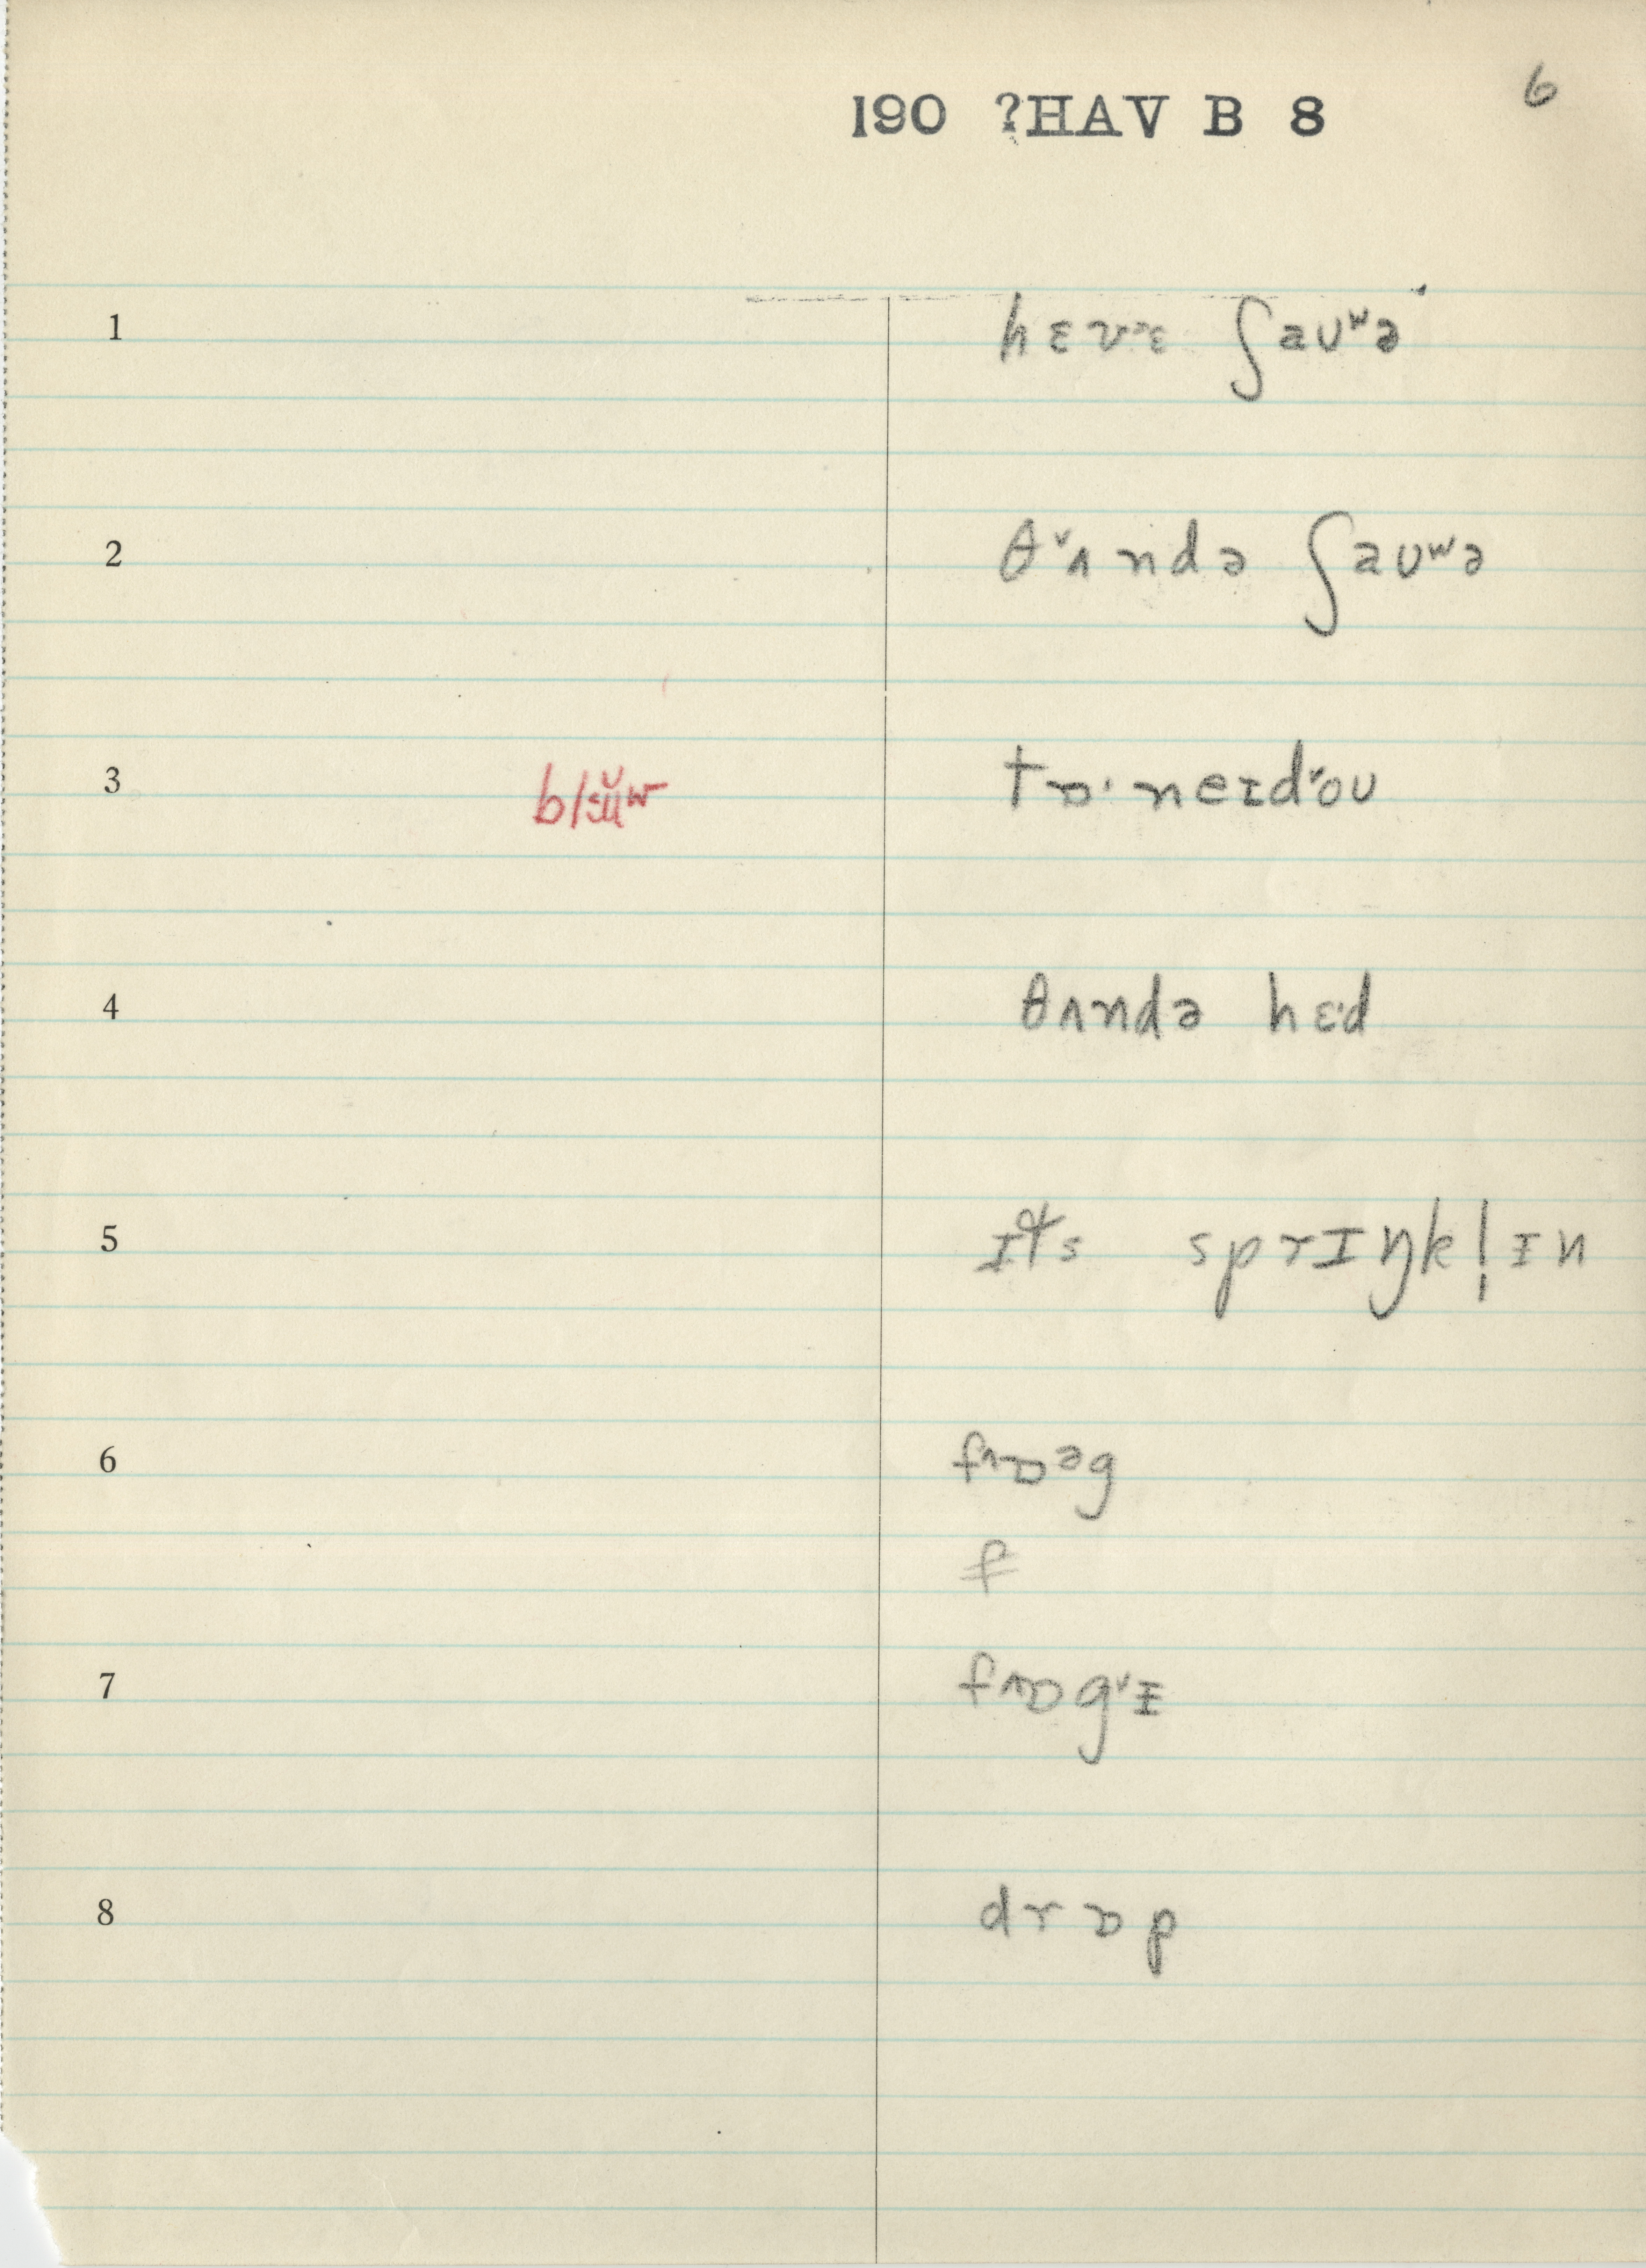 6
190 ?HAV B 8
1 hɛvᵊɛ ʃaʊʷə
2 θˇʌndə ʃaʊʷə
3 tɒ·neɪdˇoʊ
4 θʌndə hɛ·d
5 ɪts sprɪŋkl̩ɪn
6 frɒᵊg
f
7 frɒgˇɪ
8 drɒp